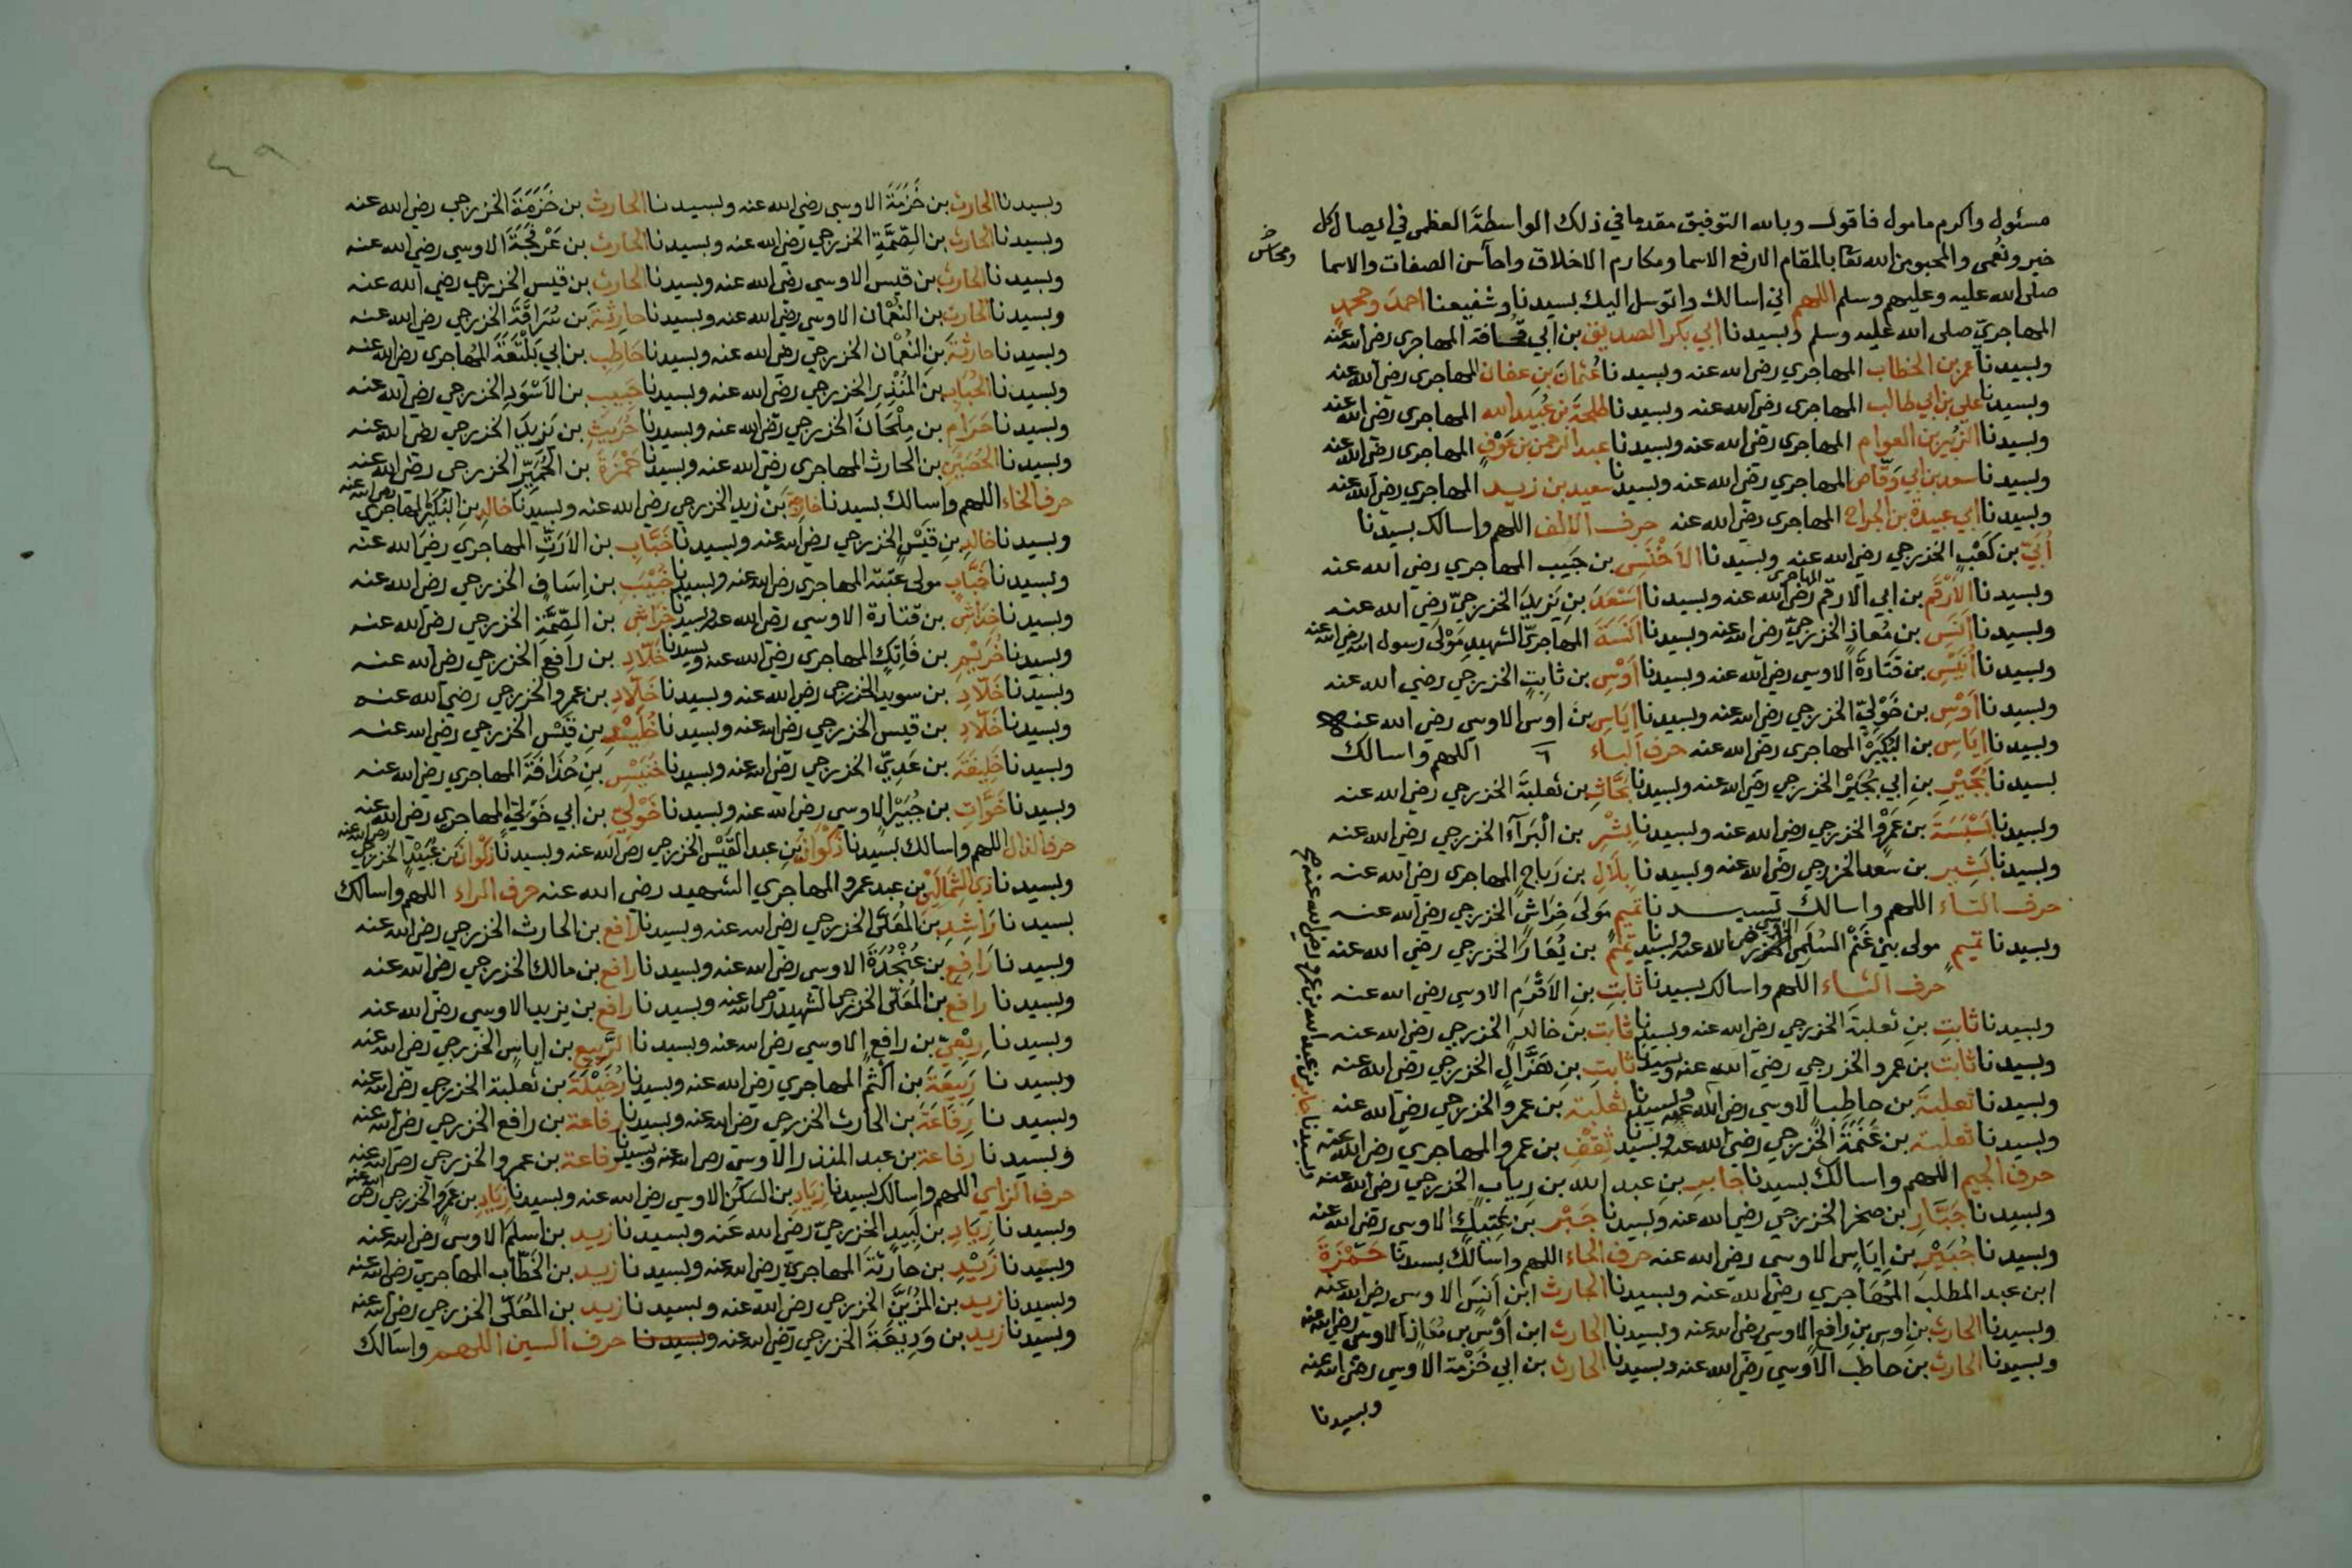 مسئول واكرم مامول فاقول وبالله التوفيق مقدما في ذلك الواسطة العظمى في ايصال كل
خير ونعمى والمحبوبين الله تعا بالمقام الارفع الاسما ومكارم الاخلاق واحاسن الصفات والاسما
ومحاسن
صلى الله عليه وعليهم وسلم اللهم اني اسالك واتوسل اليك بسيدنا وشفيعنا احمد ومحمد
المهاجري صلى الله عليه وسلم وبسيدنا ابي بكر الصديق بن ابي قحافة المهاجري رضي الله عنه
وبسيدنا عمر بن الخطاب المهاجري رضي الله عنه وبسيدنا عثمان بن عفان المهاجري رضي الله عنه
وبسيدنا علي بن ابي طالب المهاجري رضي الله عنه وبسيدنا طلحة بن عبيد الله المهاجري رضي الله عنه
وبسيدنا الزبير بن العوام المهاجري رضي الله عنه وبسيدنا عبد الرحمن بن عوف المهاجري رضي الله عنه
وبسيدنا سعد بن ابي وقاص المهاجري رضي الله عنه وبسيدنا سعيد بن زيد المهاجري رضي الله عنه
وبسيدنا ابي عبيدة بن الجراح المهاجري رضي الله عنه حرف الالف اللهم واسالك بسيدنا
أبي بن كعب الخزرجي رضي الله عنه وبسيدنا الاخنس بن حبيب المهاجري رضي الله عنه
وبسيدنا الارقم بن ابي الارقم المهاجري رضي الله عنه وبسيدنا اسعد بن يزيد الخزرجي رضي الله عنه
وبسيدنا انس بن معاذ الخزرجي رضي الله عنه وبسيدنا انسة المهاجري الشهيد مولى رسول الله رضي الله عنه
وبسيدنا انيس بن قتادة الاوسي رضي الله عنه وبسيدنا اوس بن ثابت الخزرجي رضي الله عنه
وبسيدنا اوس بن خولي الخزرجي رضي الله عنه وبسيدنا اياس بن اوس الاوسي رضي الله عنه
وبسيدنا اياس بن البكير المهاجري رضي الله عنه حرف الباء اللهم واسالك
بسيدنا بجير بن ابي بجير الخزرجي رضي الله عنه وبسيدنا بحاث بن ثعلبة الخزرجي رضي الله عنه
وبسيدنا بسبسة بن عمرو الخزرجي رضي الله عنه وبسيدنا بشر بن البراء الخزرجي رضي الله عنه
وبسيدنا بشير بن سعد الخزرجي رضي الله عنه وبسيدنا بلال بن رباح المهاجري رضي الله عنه
حرف التاء اللهم واسالك بسيدنا تميم مولى خراش الخزرجي رضي الله عنه
وبسيدنا تميم مولى بني غنم السلمي الاوسي رضي الله عنه وبسيدنا تميم بن يعار الخزرجي رضي الله عنه
حرف الثاء اللهم واسالك بسيدنا ثابت بن الاقرم الاوسي رضي الله عنه
وبسيدنا ثابت بن ثعلبة الخزرجي رضي الله عنه وبسيدنا ثابت بن خالد الخزرجي رضي الله عنه
وبسيدنا ثابت بن عمرو الخزرجي رضي الله عنه وبسيدنا ثابت بن هزال الخزرجي رضي الله عنه
وبسيدنا ثعلبة بن حاطب الاوسي رضي الله عنه وبسيدنا ثعلبة بن عمرو الخزرجي رضي الله عنه
وبسيدنا ثعلبة بن غنمة الخزرجي رضي الله عنه وبسيدنا ثقف بن عمرو المهاجري رضي الله عنه
حرف الجيم اللهم واسالك بسيدنا جابر بن عبد الله بن رياب الخزرجي رضي الله عنه
وبسيدنا جابر بن عبد الله بن عمرو رضي الله عنه صح
وبسيدنا جبار ابن صخر الخزرجي رضي الله عنه وبسيدنا جبر بن عتيك الاوسي رضي الله عنه
وبسيدنا جبير بن اياس الاوسي رضي الله عنه حرف الحاء اللهم واسالك بسيدنا حمزة
ابن عبد المطلب المهاجري رضي الله عنه وبسيدنا الحارث ابن انس الاوسي رضي الله عنه
وبسيدنا الحارث بن اوس بن رافع الاوسي رضي الله عنه وبسيدنا الحارث ابن اوس بن معاذ الاوسي رضي الله عنه
وبسيدنا الحارث بن حاطب الاوسي رضي الله عنه وبسيدنا الحارث بن ابي خزمة الاوسي رضي الله عنه
وبسيدنا
٤٩
وبسيدنا الحارث بن خزمة الاوسي رضي الله عنه وبسيدنا الحارث بن خزمة الخزرجي رضي الله عنه
وبسيدنا الحارث بن الصمة الخزرجي رضي الله عنه وبسيدنا الحارث بن عرفجة الاوسي رضي الله عنه
وبسيدنا الحارث بن قيس الاوسي رضي الله عنه وبسيدنا الحارث بن قيس الخزرجي رضي الله عنه
وبسيدنا الحارث بن النعمان الاوسي رضي الله عنه وبسيدنا حارثة بن سراقة الخزرجي رضي الله عنه
وبسيدنا حارثة بن النعمان الخزرجي رضي الله عنه وبسيدنا حاطب بن ابي بلتعة المهاجري رضي الله عنه
وبسيدنا الحباب بن المنذر الخزرجي رضي الله عنه وبسيدنا حبيب بن الاسود الخزرجي رضي الله عنه
وبسيدنا حرام بن ملحان الخزرجي رضي الله عنه وبسيدنا حريث بن يزيد الخزرجي رضي الله عنه
وبسيدنا الحصين بن الحارث المهاجري رضي الله عنه وبسيدنا حمزة بن الحمير الخزرجي رضي الله عنه
حرف الخاء اللهم واسالك بسيدنا خارجة بن زيد الخزرجي رضي الله عنه وبسيدنا خالد بن البكير المهاجري رضي الله عنه
وبسيدنا خالد بن قيس الخزرجي رضي الله عنه وبسيدنا خباب بن الارت المهاجري رضي الله عنه
وبسيدنا خباب مولى عتبة المهاجري رضي الله عنه وبسيدنا خبيب بن اساف الخزرجي رضي الله عنه
وبسيدنا خداش بن قتادة الاوسي رضي الله عنه وبسيدنا خراش بن الصمة الخزرجي رضي الله عنه
وبسيدنا خريم بن فاتك المهاجري رضي الله عنه وبسيدنا خلاد بن رافع الخزرجي رضي الله عنه
وبسيدنا خلاد بن سويد الخزرجي رضي الله عنه وبسيدنا خلاد بن عمرو الخزرجي رضي الله عنه
وبسيدنا خلاد بن قيس الخزرجي رضي الله عنه وبسيدنا خليد بن قيس الخزرجي رضي الله عنه
وبسيدنا خليفة بن عدي الخزرجي رضي الله عنه وبسيدنا خنيس بن حذافة المهاجري رضي الله عنه
وبسيدنا خوات بن جبير الاوسي رضي الله عنه وبسيدنا خولي بن ابي خولي المهاجري رضي الله عنه
حرف الذال اللهم واسالك بسيدنا ذكوان بن عبد القيس الخزرجي رضي الله عنه وبسيدنا ذكوان بن عبيد الخزرجي رضي الله عنه
وبسيدنا ذي الشمالين بن عبد عمرو المهاجري الشهيد رضي الله عنه حرف الراء اللهم واسالك
بسيدنا راشد بن المعلى الخزرجي رضي الله عنه وبسيدنا رافع بن الحارث الخزرجي رضي الله عنه
وبسيدنا رافع بن عنجدة الاوسي رضي الله عنه وبسيدنا رافع بن مالك الخزرجي رضي الله عنه
وبسيدنا رافع بن المعلى الخزرجي الشهيد رضي الله عنه وبسيدنا رافع بن يزيد الاوسي رضي الله عنه
وبسيدنا ربعي بن رافع الاوسي رضي الله عنه وبسيدنا الربيع بن اياس الخزرجي رضي الله عنه
وبسيدنا ربيعة بن اكثم المهاجري رضي الله عنه وبسيدنا رخيلة بن ثعلبة الخزرجي رضي الله عنه
وبسيدنا رفاعة بن الحارث الخزرجي رضي الله عنه وبسيدنا رفاعة بن رافع الخزرجي رضي الله عنه
وبسيدنا رفاعة بن عبد المنذر الاوسي رضي الله عنه وبسيدنا رفاعة بن عمرو الخزرجي رضي الله عنه
حرف الزاي اللهم واسالك بسيدنا زياد بن السكن الاوسي رضي الله عنه وبسيدنا زياد بن عمرو الخزرجي رضي الله عنه
وبسيدنا زياد بن لبيد الخزرجي رضي الله عنه وبسيدنا زيد بن اسلم الاوسي رضي الله عنه
وبسيدنا زيد بن حارثة المهاجري رضي الله عنه وبسيدنا زيد بن الخطاب المهاجري رضي الله عنه
وبسيدنا زيد بن المزين الخزرجي رضي الله عنه وبسيدنا زيد بن المعلى الخزرجي رضي الله عنه
وبسيدنا زيد بن وديعة الخزرجي رضي الله عنه وبسيدنا حرف السين اللهم واسالك